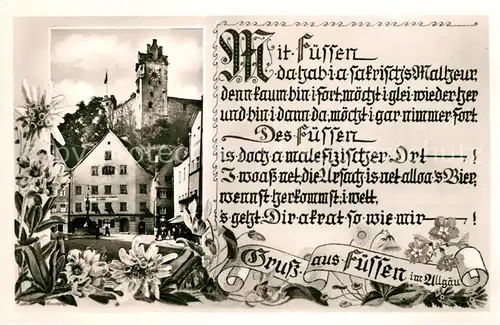 Mit Füssen
da hab i a sakrisch's Malheur,
denn kaum bin i fort, möcht i glei wieder her
und bin i dann da, möcht i gar nimmer fort.
Des Füssen
is doch a malefizischer Ort — !
I woaß net, die Ursach is net alloa's Bier,
wennst herkommst, i wett,
s'geht Dir akrat so wie mir — !
Gruß aus Füssen im Allgäu